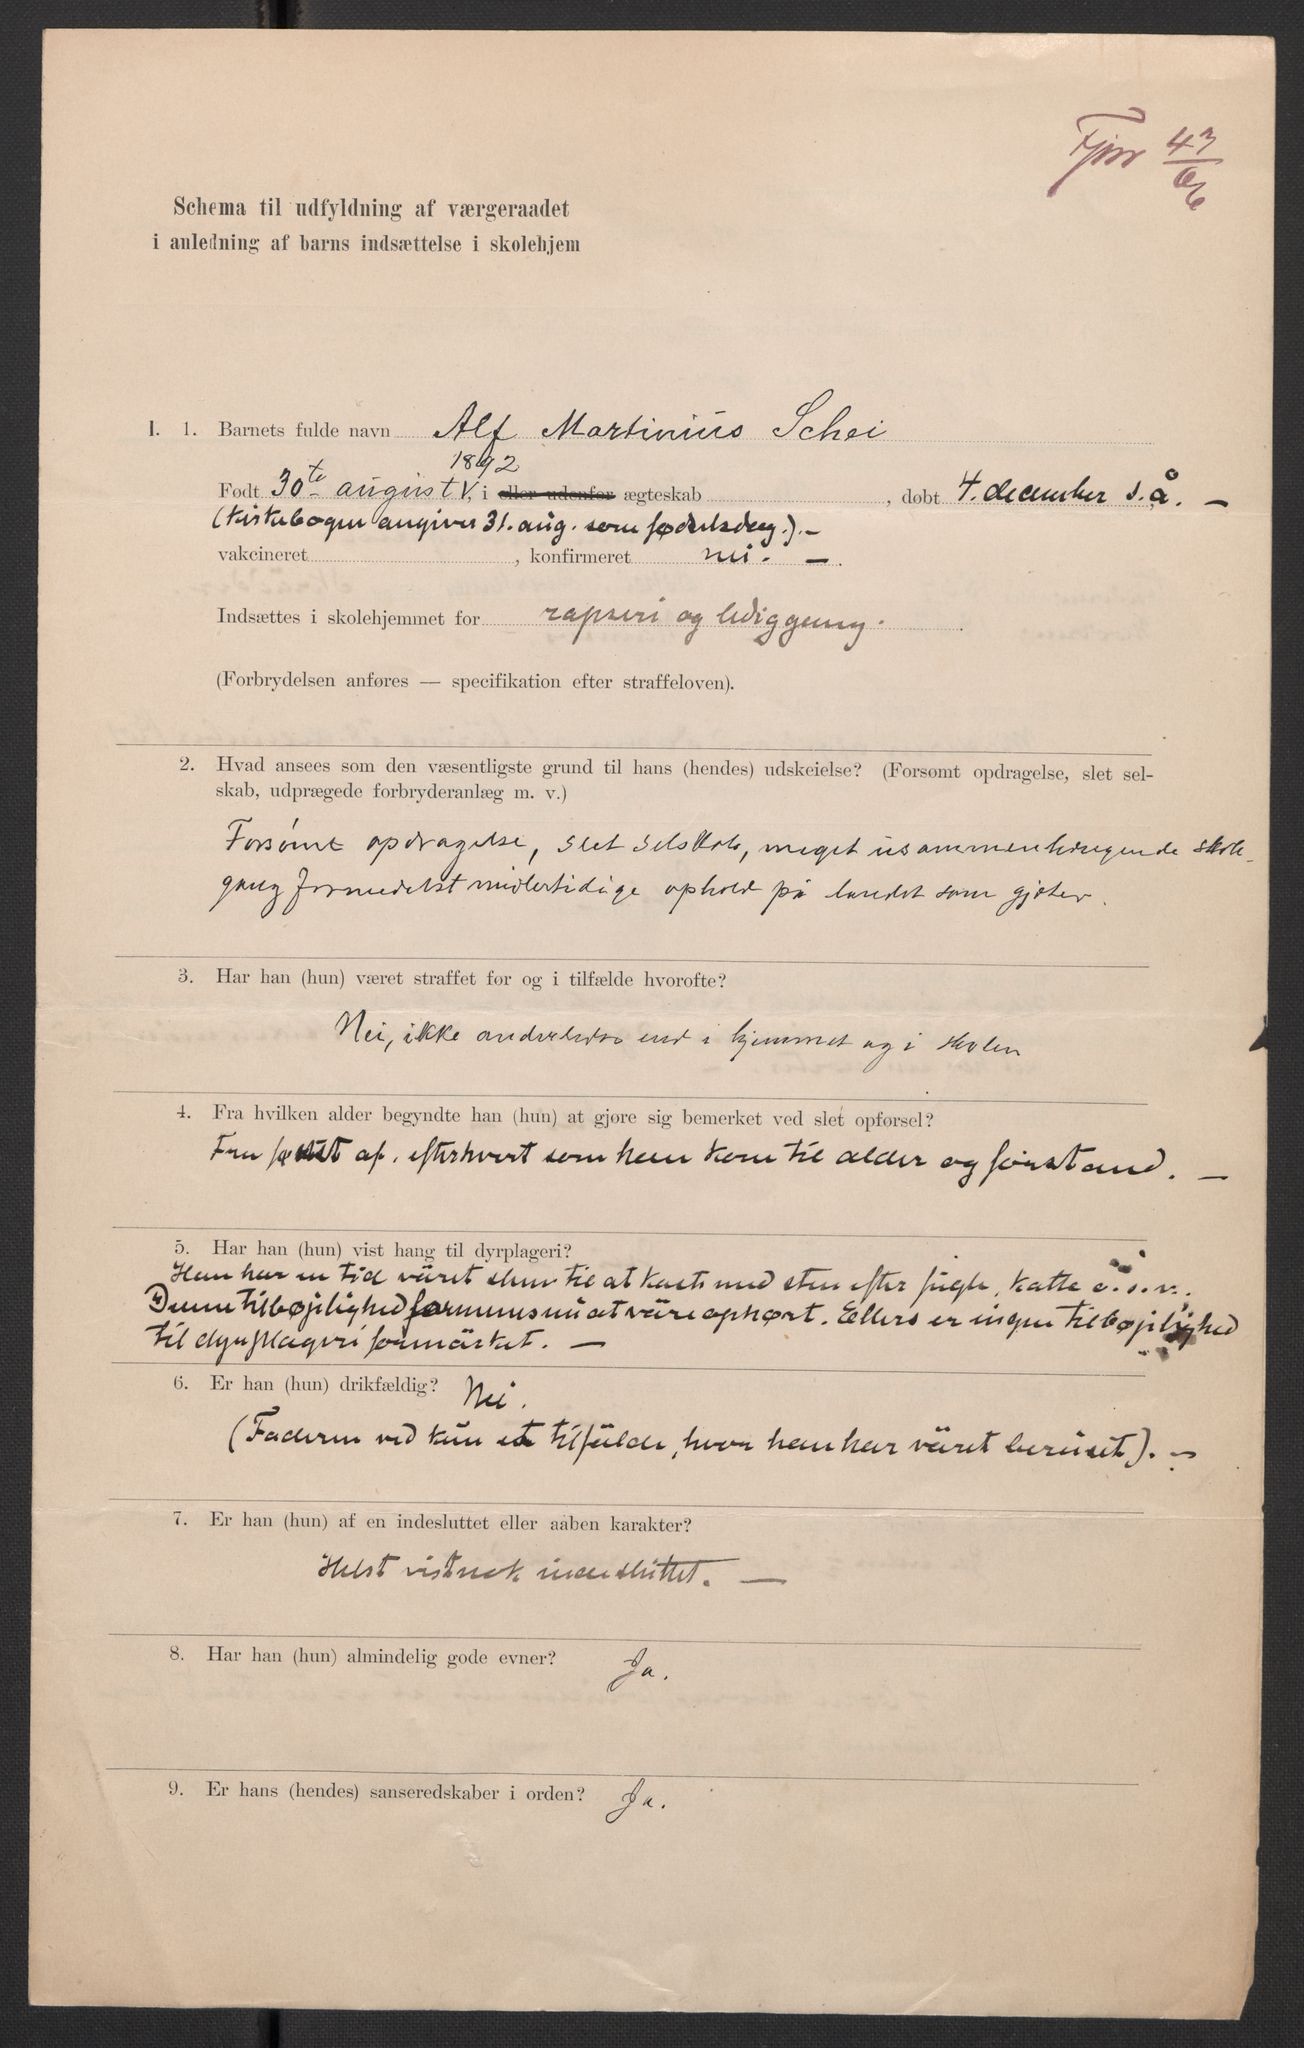 43
06
Schema til udfyldning af værgeraadet
i anledning af barns indsættelse i skolehjem
I. 1. Barnets fulde navn Alf Martinius Schei
1892
Født 30te august, i eller udenfor ægteskab , døbt 4. december s. å. –
(Kirkebogen angiver 31. aug. som fødselsdag.). –
vakcineret , konfirmeret nei. –
Indsættes i skolehjemmet for rapseri og lediggang.
(Forbrydelsen anføres — specifikation efter straffeloven).
2. Hvad ansees som den væsentligste grund til hans (hendes) udskeielse? (Forsømt opdragelse, slet sel-
skab, udprægede forbryderanlæg m. v.)
Forsømt opdragelse, slet selskab, meget usammenhængende skole-
gang formedelst midlertidige ophold på landet som gjæter.
3. Har han (hun) været straffet før og i tilfælde hvorofte?
Nei, ikke anderledes end i hjemmet og i skolen
4. Fra hvilken alder begyndte han (hun) at gjøre sig bemerket ved slet opførsel?
Fra først af, efterhvert som han kom til alder og forstand. –
5. Har han (hun) vist hang til dyrplageri?
Han har en tid været slem til at kaste med sten efter fugle, katte o. s. v.
Denne tilbøjelighed formenes nu at være ophørt. Ellers er ingen tilbøjelighed
til dyrplageri formærket. –
6. Er han (hun) drikfældig? Nei.
(Faderen ved kun et tilfælde, hvor han har været beruset). –
7. Er han (hun) af en indesluttet eller aaben karakter?
Helst vistnok indesluttet. –
8. Har han (hun) almindelig gode evner? Ja.
9. Er hans (hendes) sanseredskaber i orden? Ja.